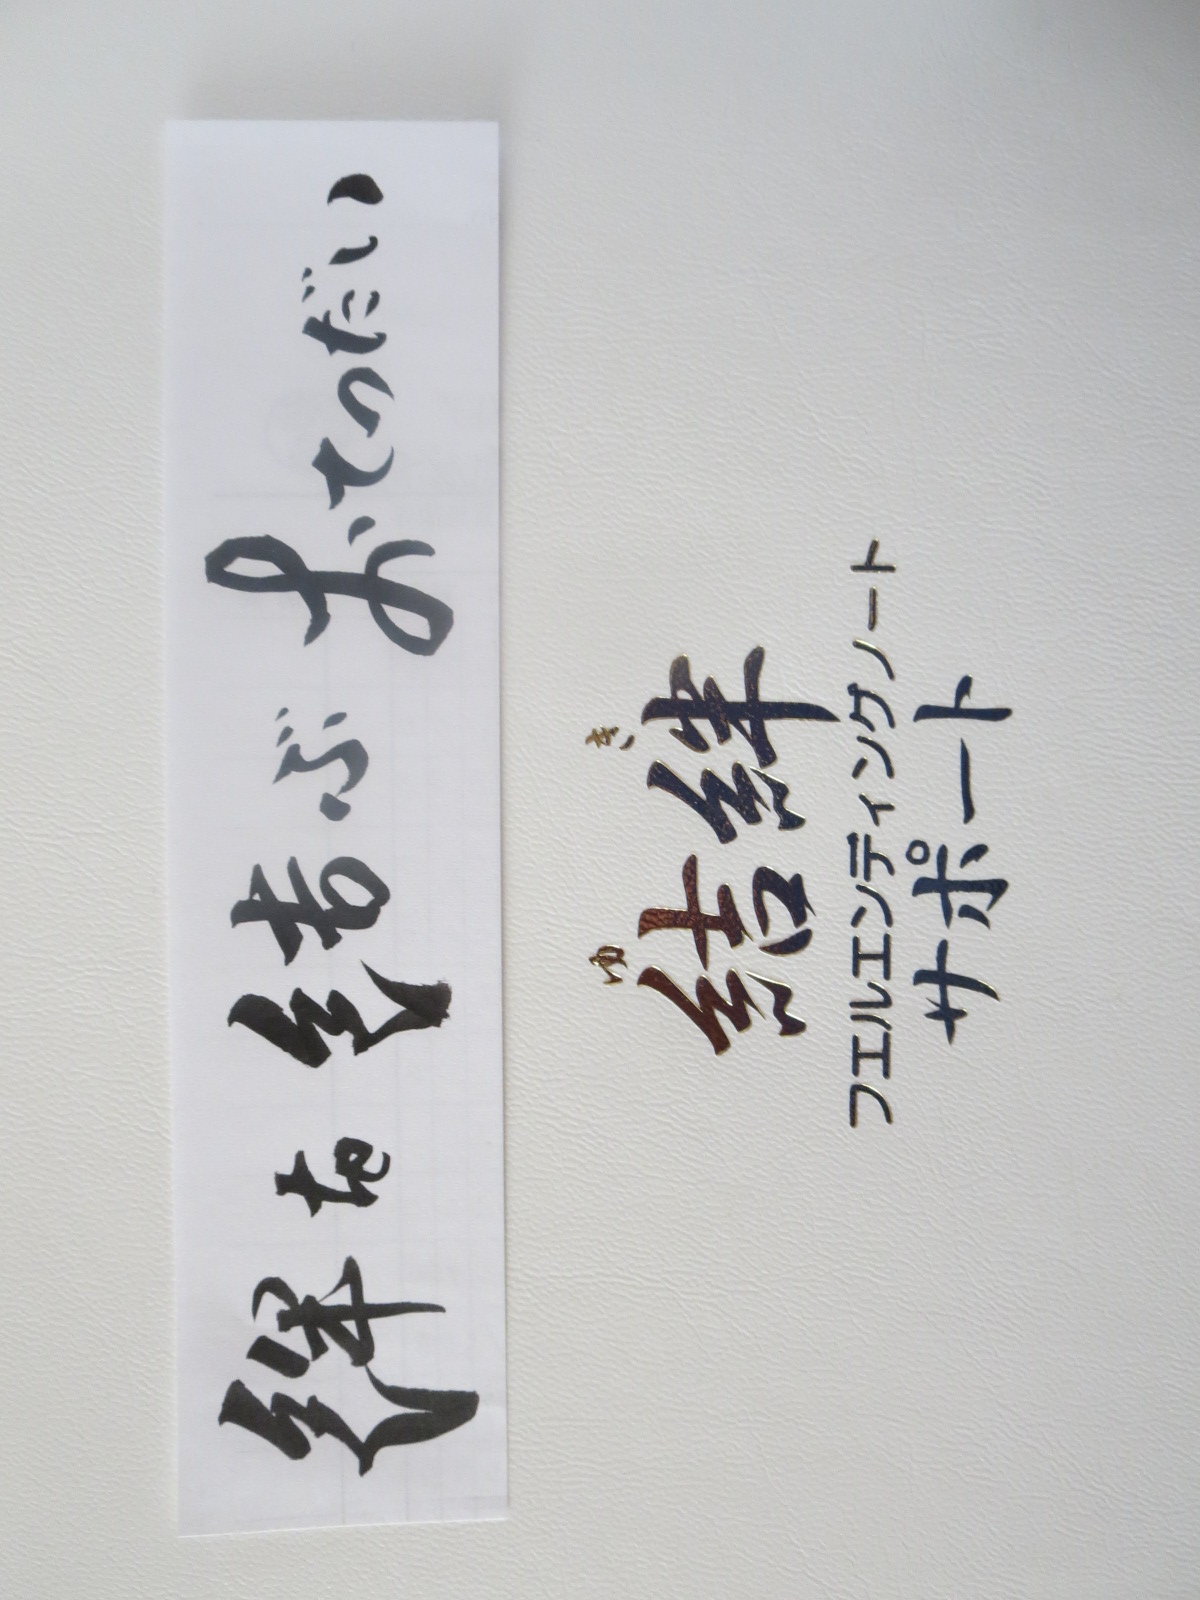 絆を結ぶ おてつだい
ゆ き
結絆
フエルエンディングノート
サポート